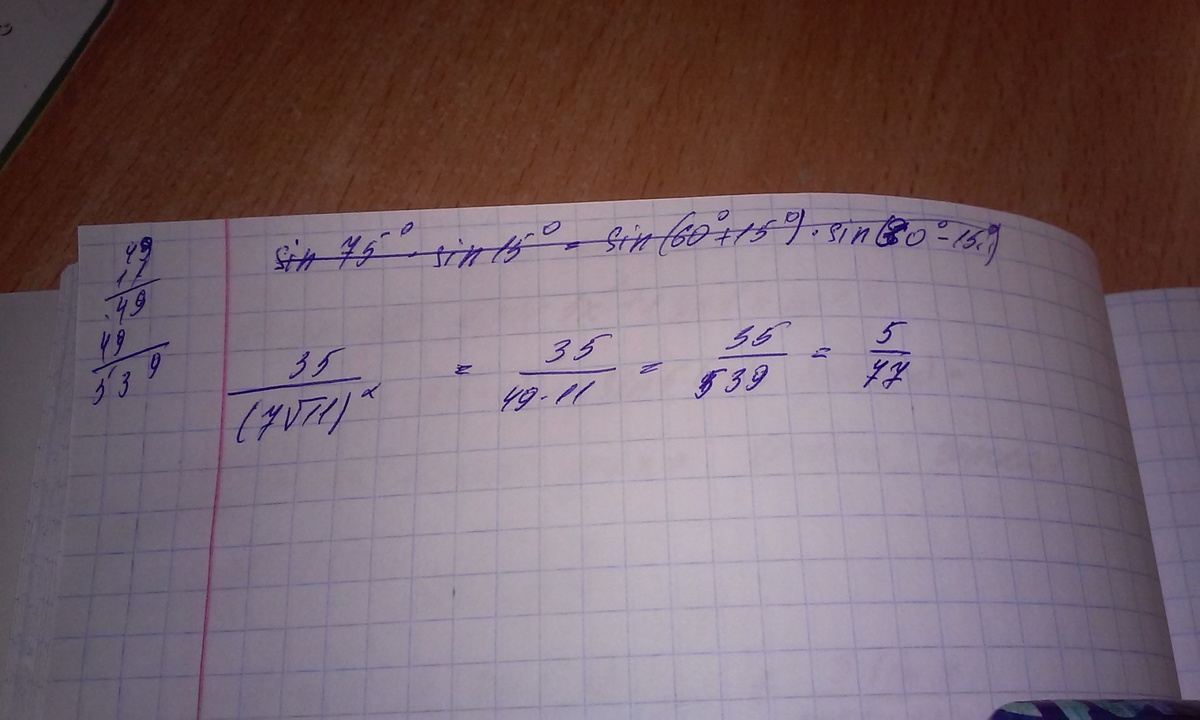 49
11
49
49
539
sin 75° · sin 15° = sin(60° + 15°) · sin(30° - 15°)
35/(7√11)² = 35/(49·11) = 35/539 = 5/77